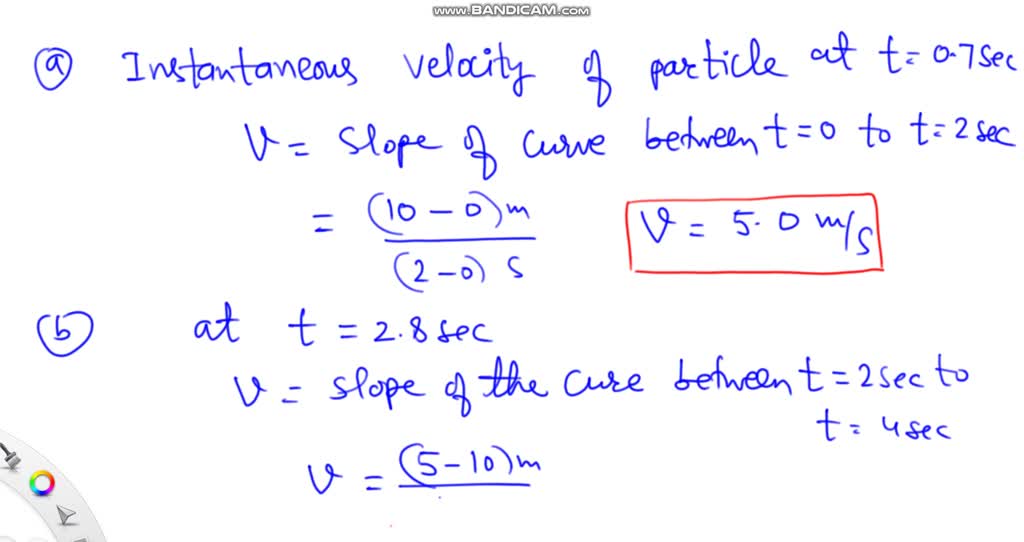 www.BANDICAM.com
(a) Instantaneous velocity of particle at t=0.7sec
V = slope of curve between t=0 to t=2sec
= (10-0)m / (2-0) s V = 5.0 m/s
(b) at t = 2.8sec
V = slope of the cure between t=2sec to
t=4sec
V = (5-10)m